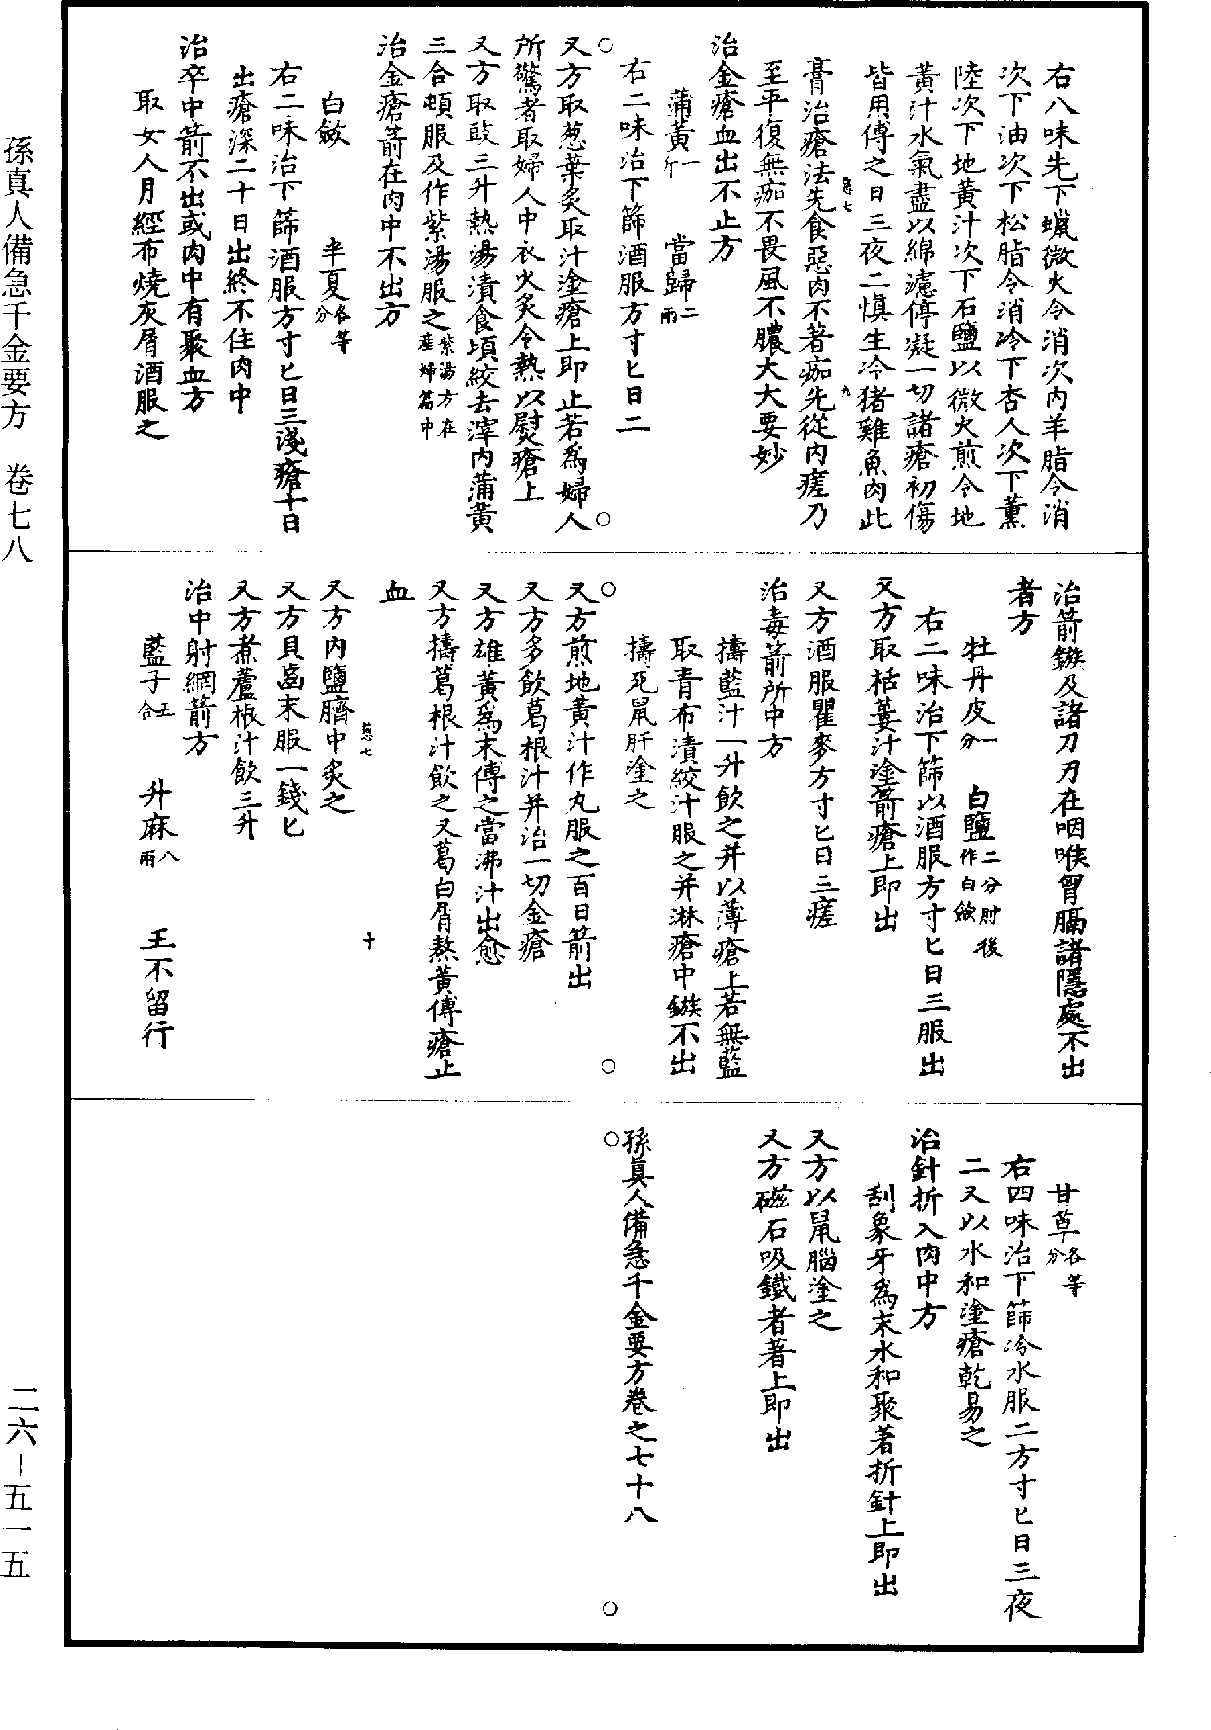 右八味先下蠟微火令消次內羊脂令消
次下油次下松脂令消冷下杏人次下薰
陸次下地黃汁次下石鹽以微火煎令地
黃汁水氣盡以綿濾停凝一切諸瘡初傷
皆用傅之日三夜二慎生冷猪雞魚肉此
惡七 九
膏治瘡法先食惡肉不著痂先從內瘥乃
至平復無痂不畏風不膿大大要妙
治金瘡血出不止方
蒲黃一斤 當歸二兩
右二味治下篩酒服方寸匕日二
又方取葱葉炙取汁塗瘡上即止若為婦人
所驚者取婦人中衣火炙令熱以熨瘡上
又方取豉三升熱湯漬食頃絞去滓內蒲黃
三合頓服及作紫湯服之紫湯方在產婦篇中
治金瘡箭在肉中不出方
白斂 半夏各等分
右二味治下篩酒服方寸匕日三淺瘡十日
出瘡深二十日出終不住肉中
治卒中箭不出或肉中有聚血方
取女人月經布燒灰屑酒服之
治箭鏃及諸刀刃在咽喉胷膈諸隱處不出
者方
牡丹皮一分 白鹽二分肘後作白斂
右二味治下篩以酒服方寸匕日三服出
又方取栝蔞汁塗箭瘡上即出
又方酒服瞿麥方寸匕日三瘥
治毒箭所中方
擣藍汁一升飲之并以薄瘡上若無藍
取青布漬絞汁服之并淋瘡中鏃不出
擣死鼠肝塗之
又方煎地黃汁作丸服之百日箭出
又方多飲葛根汁并治一切金瘡
又方雄黃為末傅之當沸汁出愈
又方擣葛根汁飲之又葛白屑熬黃傅瘡止
血
惡七 十
又方內鹽臍中炙之
又方貝齒末服一錢匕
又方煮蘆根汁飲三升
治中射網箭方
藍子五合 升麻八兩 王不留行
甘草各等分
右四味治下篩冷水服二方寸匕日三夜
二又以水和塗瘡乾易之
治針折入肉中方
刮象牙為末水和聚著折針上即出
又方以鼠腦塗之
又方磁石吸鐵者著上即出
孫真人備急千金要方卷之七十八
孫真人備急千金要方 卷七八
二六－五一五